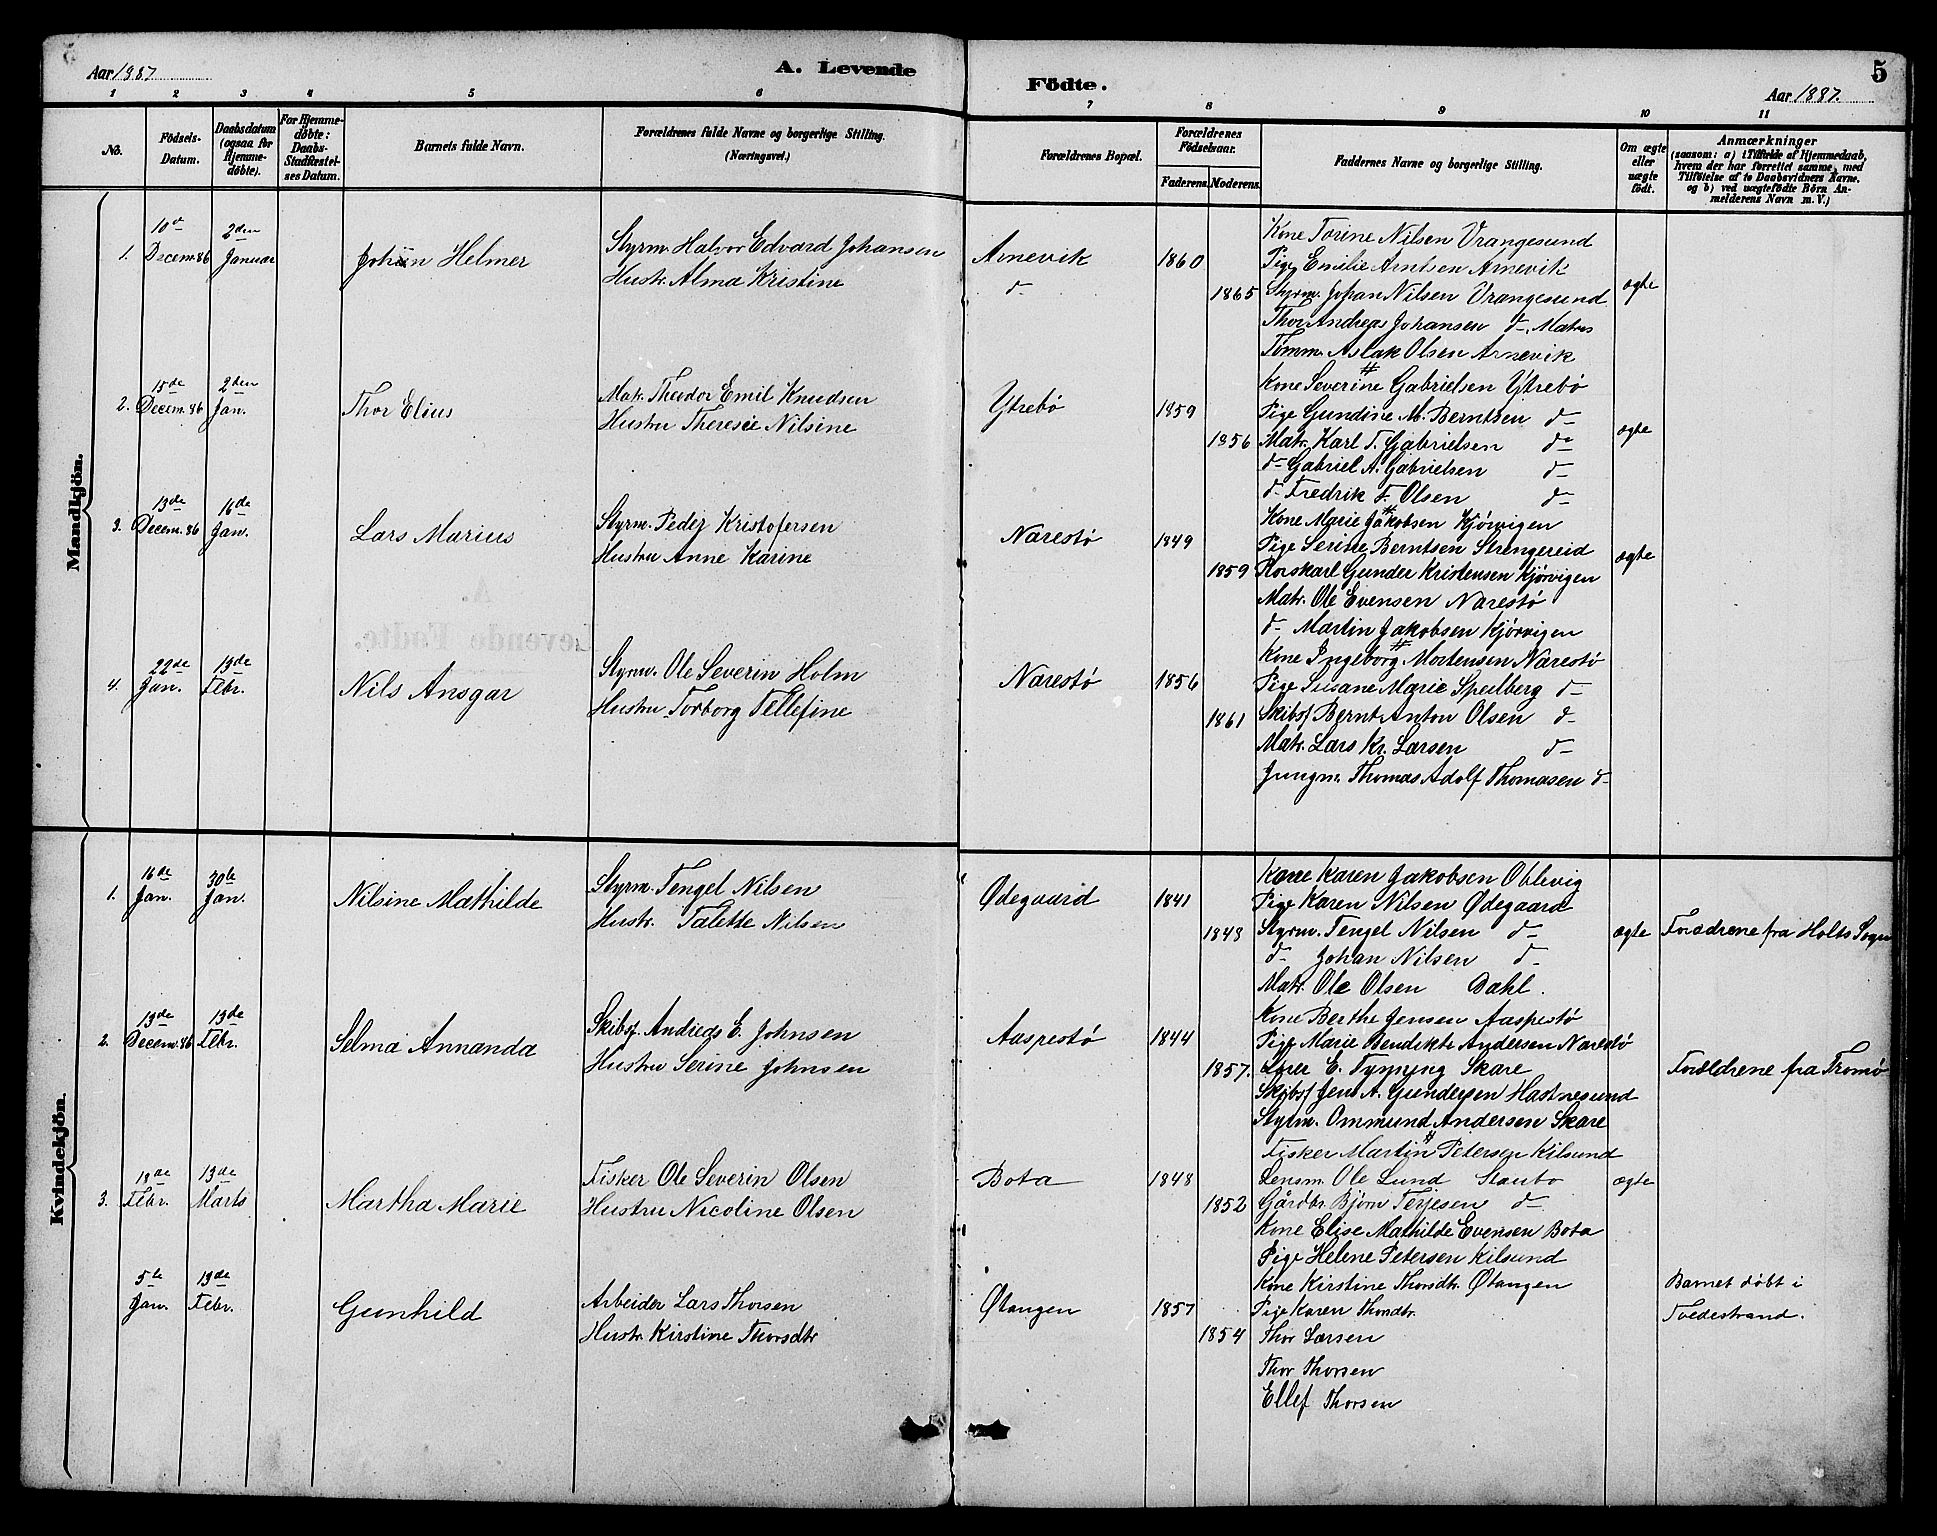 5
Aar 1887.
A. Levende
Födte.
Aar 1887.
5
1 2 3 4 5 6 7 8 9 10 11
No.
Födsels-Datum.
Daabsdatum (ogsaa for Hjemme-døbte).
For Hjemme-døbte: Daabs-Stadfæstel-ses Datum.
Barnets fulde Navn.
Forældrenes fulde Navne og borgerlige Stilling. (Næringsvei.)
Forældrenes Bopæl.
Forældrenes Födselsaar.
Faderens.
Moderens.
Faddernes Navne og borgerlige Stilling.
Om ægte eller uægte født.
Anmærkninger
(saasom: a) i Tilfælde af Hjemmedaab,
hvem der har forrettet samme, med
Tilföielse af to Daabsvidners Navne.
og b) ved uægtefödte Börn An-
melderens Navn m. V.)
Mandkjön.
1. 10d Decem. 86 2den Januar Johan Helmer
Styrm. Halvor Edvard Johansen
Hustr. Alma Kristine
Arnevik
d-
1860
1865
Kone Torine Nilsen Vrangesund
Pige Emilie Arntsen Arnevik
Styrm. Johan Nilsen Vrangesund
Thor Andreas Johansen d-, Matros
Tømm. Aslak Olsen Arnevik
ægte
2. 15de Decem. 86 2den Jan. Thor Elius
Matr. Theodor Emil Knudsen
Hustru Theresie Nilsine
Ytrebø
1859
1856
Kone Severine Gabrielsen Ytrebø
Pige Gundine M. Berntsen d-
Matr. Karl T. Gabrielsen d-
d- Gabriel A. Gabrielsen d-
d- Fredrik F. Olsen d-
ægte
3. 13de Decem. 86 16de Jan. Lars Marius
Styrm. Peder Kristofersen
Hustru Anne Karine
Narestø
1849
1859
Kone Marie Jakobsen Kjørvigen
Pige Serine Berntsen Strengereid
Rorskarl Gunder Kristensen Kjørvigen
Matr. Ole Evensen Narestø
d- Martin Jakobsen Kjørvigen
ægte
4. 22de Jan. 13de Febr. Nils Ansgar
Styrm. Ole Severin Holm
Hustru Torborg Tellefine
Narestø
1856
1861
Kone Ingeborg Mortensen Narestø
Pige Susane Marie Speilberg d-
Skibsf Bernt Anton Olsen d-
Matr. Lars Kr. Larsen d-
Jungm. Thomas Adolf Thomasen d-
Kvindekjön.
1. 16de Jan. 30te Jan. Nilsine Mathilde
Styrm. Tengel Nilsen
Hustr. Talette Nilsen
Ødegaard
1841
1843
Kone Karen Jakobsen Oblevig
Pige Karen Nilsen Ødegaard
Styrm. Tengel Nilsen d-
d- Johan Nilsen d-
Matr. Ole Olsen Dahl.
ægte
Forædrene fra Holts Sogn
2. 13de Decem. 86 13de Febr. Selma Annanda
Skibsf. Andreas E. Johnsen
Hustru Serine Johnsen
Aasprestø
1844
1857.
Kone Berthe Jensen Aasprestø
Pige Marie Bendikte Andersen Narestø
E. Tynning Skare
Skibsf Jens A. Gundersen Hastnesund
Styrm. Ommund Andersen Skare
Forældrene fra Tromø
3. 18de Febr. 13de Marts Martha Marie
Fisker Ole Severin Olsen
Hustru Nicoline Olsen
Bota
1848
1852
Fisker Martin Petersen Kilsund
Lensm. Ole Lund Staubo
Gårdbr. Bjørn Terjesen d-
Kone Elise Mathilde Evensen Bota
Pige Helene Petersen Kilsund
ægte
5te Jan. 13de Febr. Gunhild
Arbeider Lars Thorsen
Hustr. Kirstine Thorsdtr
Øtangen
1857
1854
Kone Kirstine Thorsdtr. Øtangen
Pige Karen Thorsdtr.
Thor Larsen
Thor Thorsen
Ellef Thorsen
Barnet døbt i
Tvedestrand.